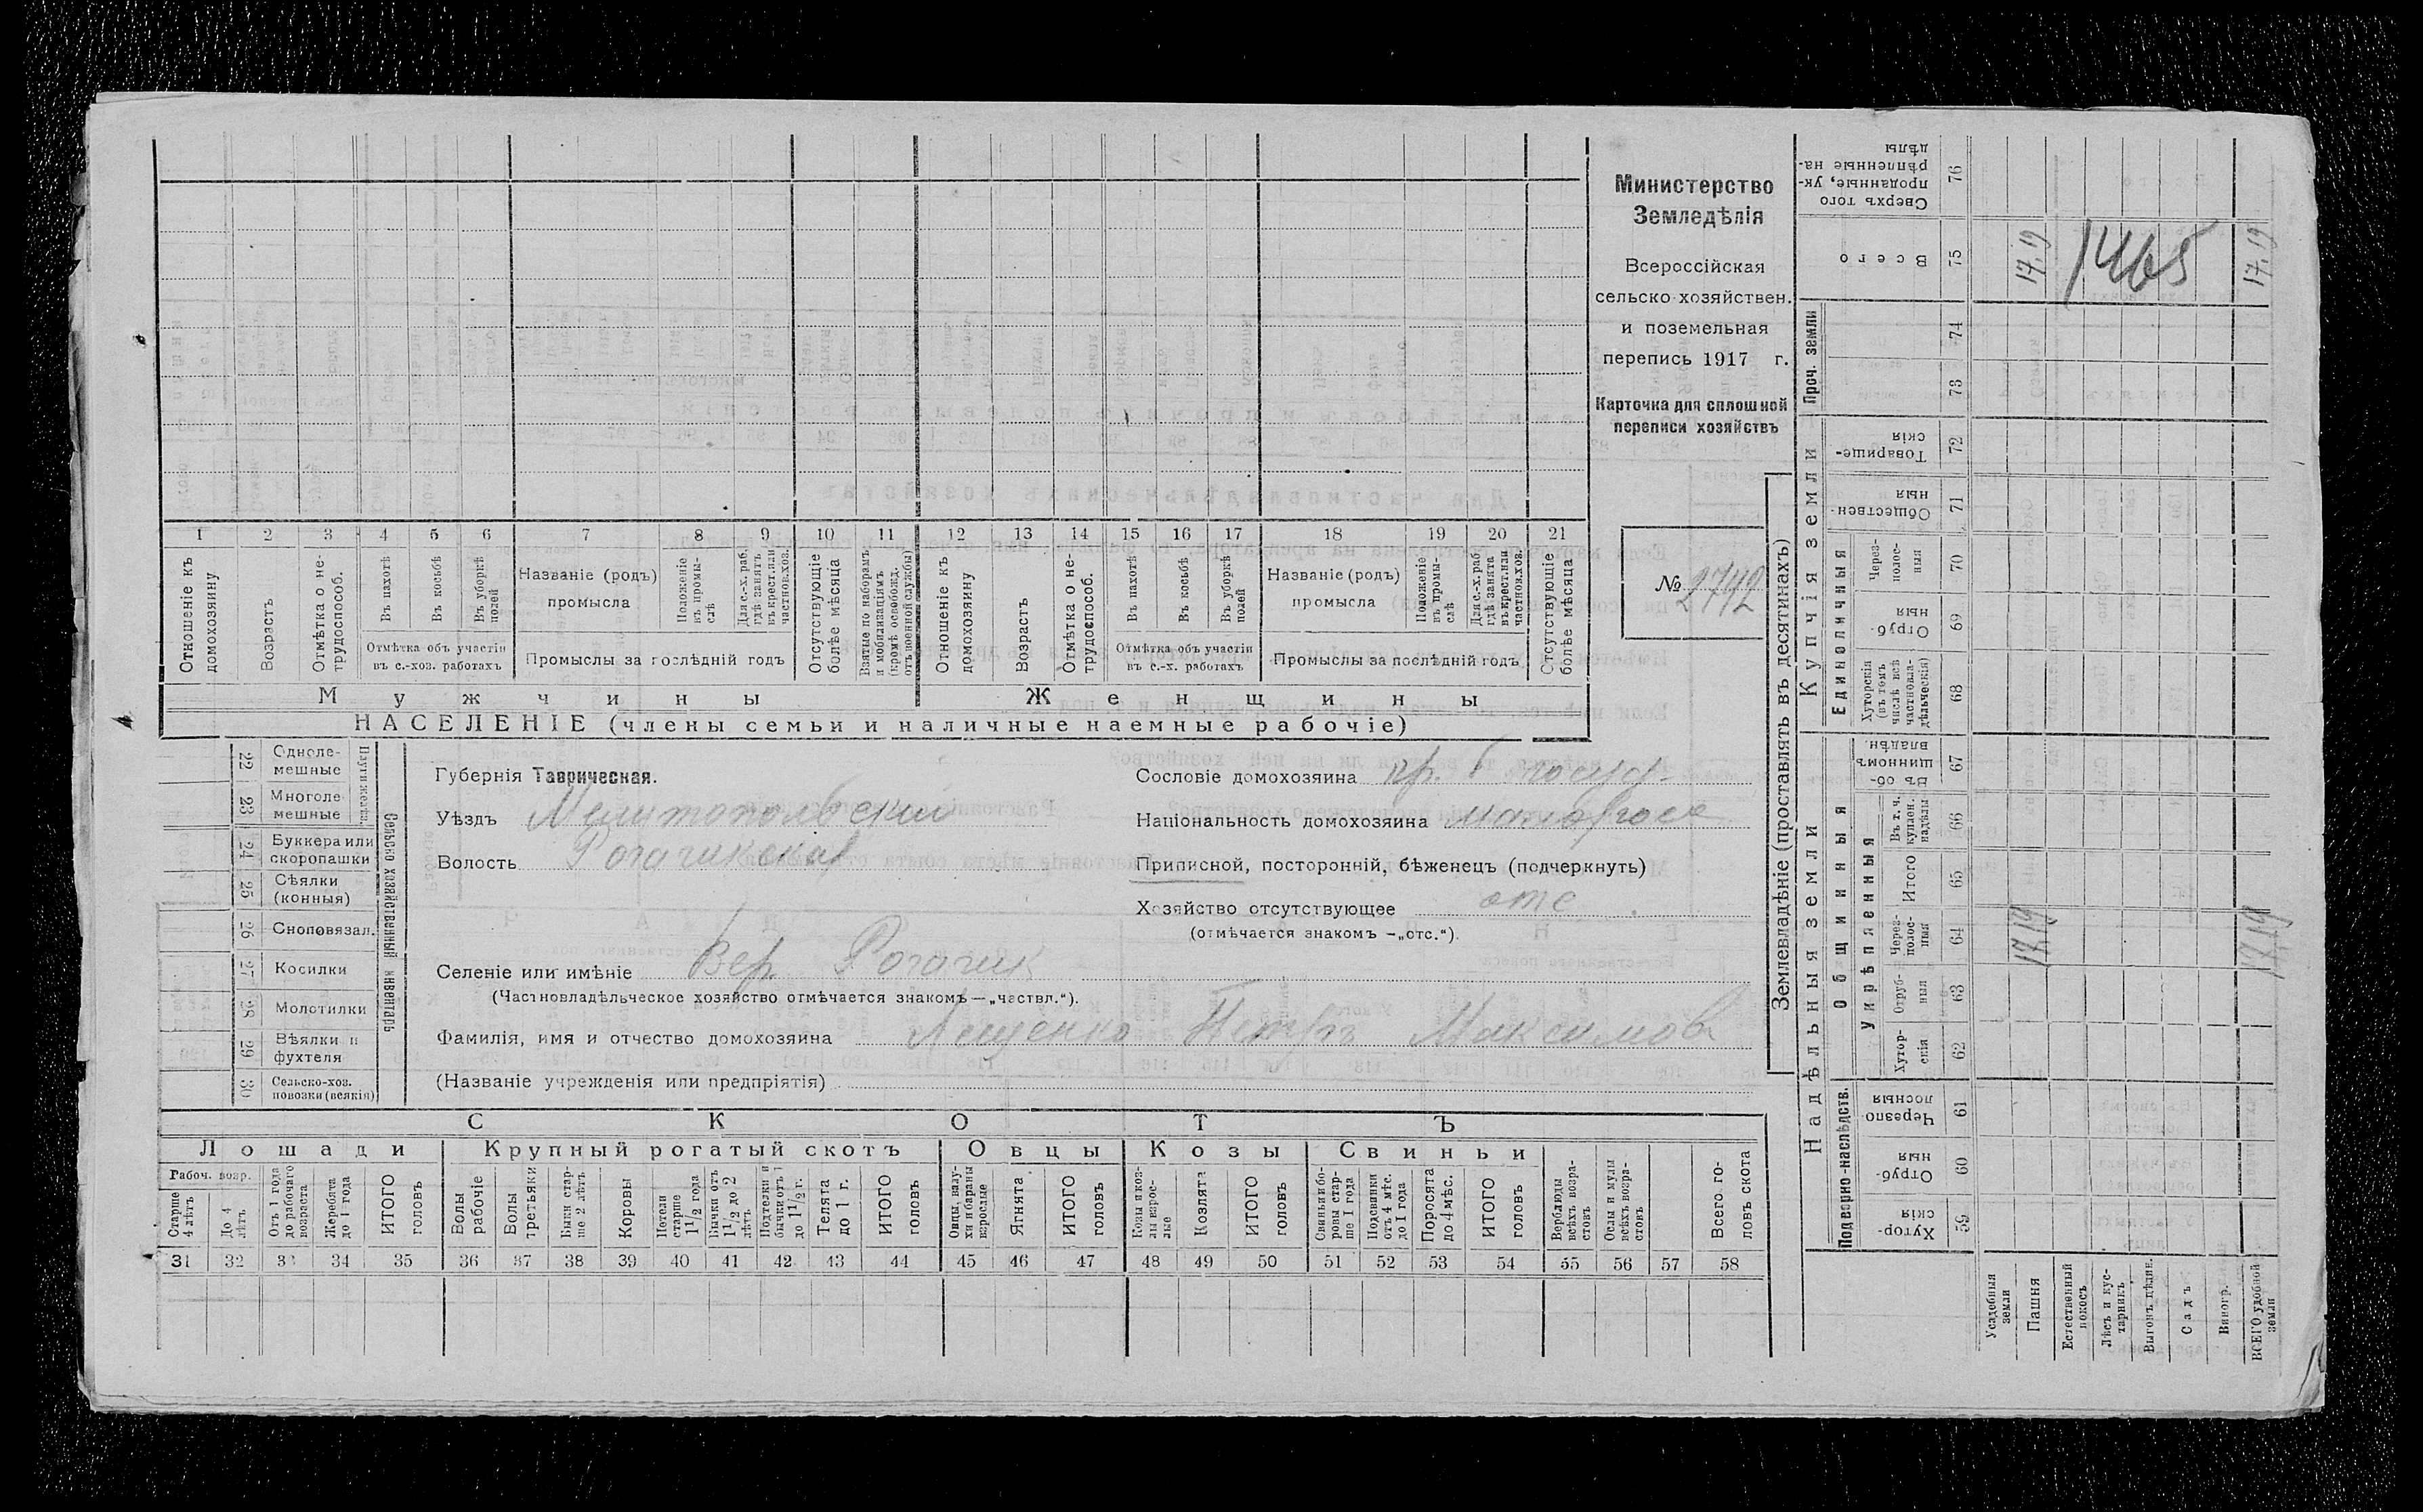 Министерство
Земледѣлія
Всероссійская
сельско-хозяйствен.
и поземельная
перепись 1917 г.
Карточка для сплошной
переписи хозяйствъ
№ 2742
1 2 3 4 5 6 7 8 9 10 11 12 13 14 15 16 17 18 19 20 21
Отношеніе къ домохозяину
Возрастъ
Отмѣтка о не-трудоспособ.
Въ пахотѣ
Въ косьбѣ
Въ уборкѣ полей
Отмѣтка объ участіи въ с.-хоз. работахъ
Названіе (родъ) промысла
Положеніе въ промы-слѣ
Для с.-х. раб. гдѣ занятъ въ крест. или частнов. хоз.
Промыслы за послѣдній годъ
Отсутствующіе болѣе мѣсяца
Взятые по наборамъ и мобилизаціямъ (кромѣ освобожд. отъ военной службы)
Отношеніе къ домохозяину
Возрастъ
Отмѣтка о не-трудоспособ.
Въ пахотѣ
Въ косьбѣ
Въ уборкѣ полей
Отмѣтка объ участіи въ с.-х. работахъ
Названіе (родъ) промысла
Положеніе въ промы-слѣ
Для с.-х. раб. гдѣ занята въ крест. или частнов. хоз.
Промыслы за послѣдній годъ
Отсутствующіе болѣе мѣсяца
Мужчины Женщины
НАСЕЛЕНІЕ (члены семьи и наличные наемные рабочіе)
22 Одноле-мешные
23 Многоле-мешные
24 Буккера или скоропашки
25 Сѣялки (конныя)
26 Сноповязал.
27 Косилки
28 Молотилки
29 Вѣялки и фухтеля
30 Сельско-хоз. повозки (всякія)
Сельско хозяйственный инвентарь
Губернія Таврическая.
Уѣздъ Мелитопольскій
Волость Рогачикская
Селеніе или имѣніе Вер. Рогачик
(Частновладѣльческое хозяйство отмѣчается знакомъ — „частвл.“).
Фамилія, имя и отчество домохозяина Лещенко Петръ Максимов
(Названіе учрежденія или предпріятія)
Сословіе домохозяина кр. б госуд.
Національность домохозяина малоросс
Приписной, посторонній, бѣженецъ (подчеркнуть)
Хозяйство отсутствующее отс
(отмѣчается знакомъ —„отс.“).
СКОТЪ
Лошади Крупный рогатый скотъ Овцы Козы Свиньи
Рабоч. возр.
Старше 4 лѣтъ
До 4 лѣтъ
Отъ 1 года до рабочаго возраста
Жеребята до 1 года
ИТОГО головъ
Волы рабочіе
Волы третьяки
Быки стар-ше 2 лѣтъ
Коровы
Нетели старше 1 1/2 года
Бычки отъ 1 1/2 до 2 лѣтъ
Подтелки и бычки отъ 1 до 1 1/2 г.
Телята до 1 г.
ИТОГО головъ
Овцы, валу-хи и бараны взрослые
Ягнята
ИТОГО головъ
Козы и коз-лы взрос-лые
Козлята
ИТОГО головъ
Свиньи и бо-ровы стар-ше 1 года
Подсвинки отъ 4 мѣс. до 1 года
Поросята до 4 мѣс.
ИТОГО головъ
Верблюды всѣхъ возра-стовъ
Ослы и мулы всѣхъ возра-стовъ
Всего го-ловъ скота
31 32 33 34 35 36 37 38 39 40 41 42 43 44 45 46 47 48 49 50 51 52 53 54 55 56 57 58
Землевладѣніе (проставлять въ десятинахъ)
Надѣльныя земли Купчія земли Проч. земли
Подворно-наслѣдств.
Общинныя
Укрѣпленныя
Единоличныя
59 Хутор-скія
60 Отруб-ныя
61 Черезпо-лосныя
62 Хутор-скія
63 Отруб-ныя
64 Через-полос-ныя
65 Итого
66 Въ т. ч. куплен. надѣлы
67 Въ об-щинномъ владѣн.
68 Хуторскія (въ томъ числѣ всѣ частновла-дѣльческія)
69 Отруб-ныя
70 Через-полос-ныя
71 Обществен-ныя
72 Товарище-скія
73
74
75 Всего
76 Сверхъ того проданные, ук-рѣпленные на-дѣлы
Усадебныя земли
Пашня 17,19 17,19
Естественный покосъ
Лѣсъ и кус-тарникъ
Выгонъ, цѣлин.
Садъ
Виногр.
ВСЕГО удобной земли 17,19 17,19
1465